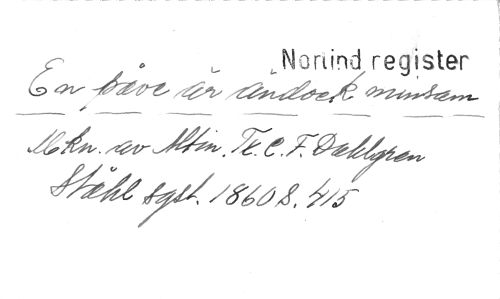 Norlind register
En påve är ändock mumsam
Mkn. av Altin. Te. C. F. Dahlgren
Ståhl sgst. 1860 S. 415